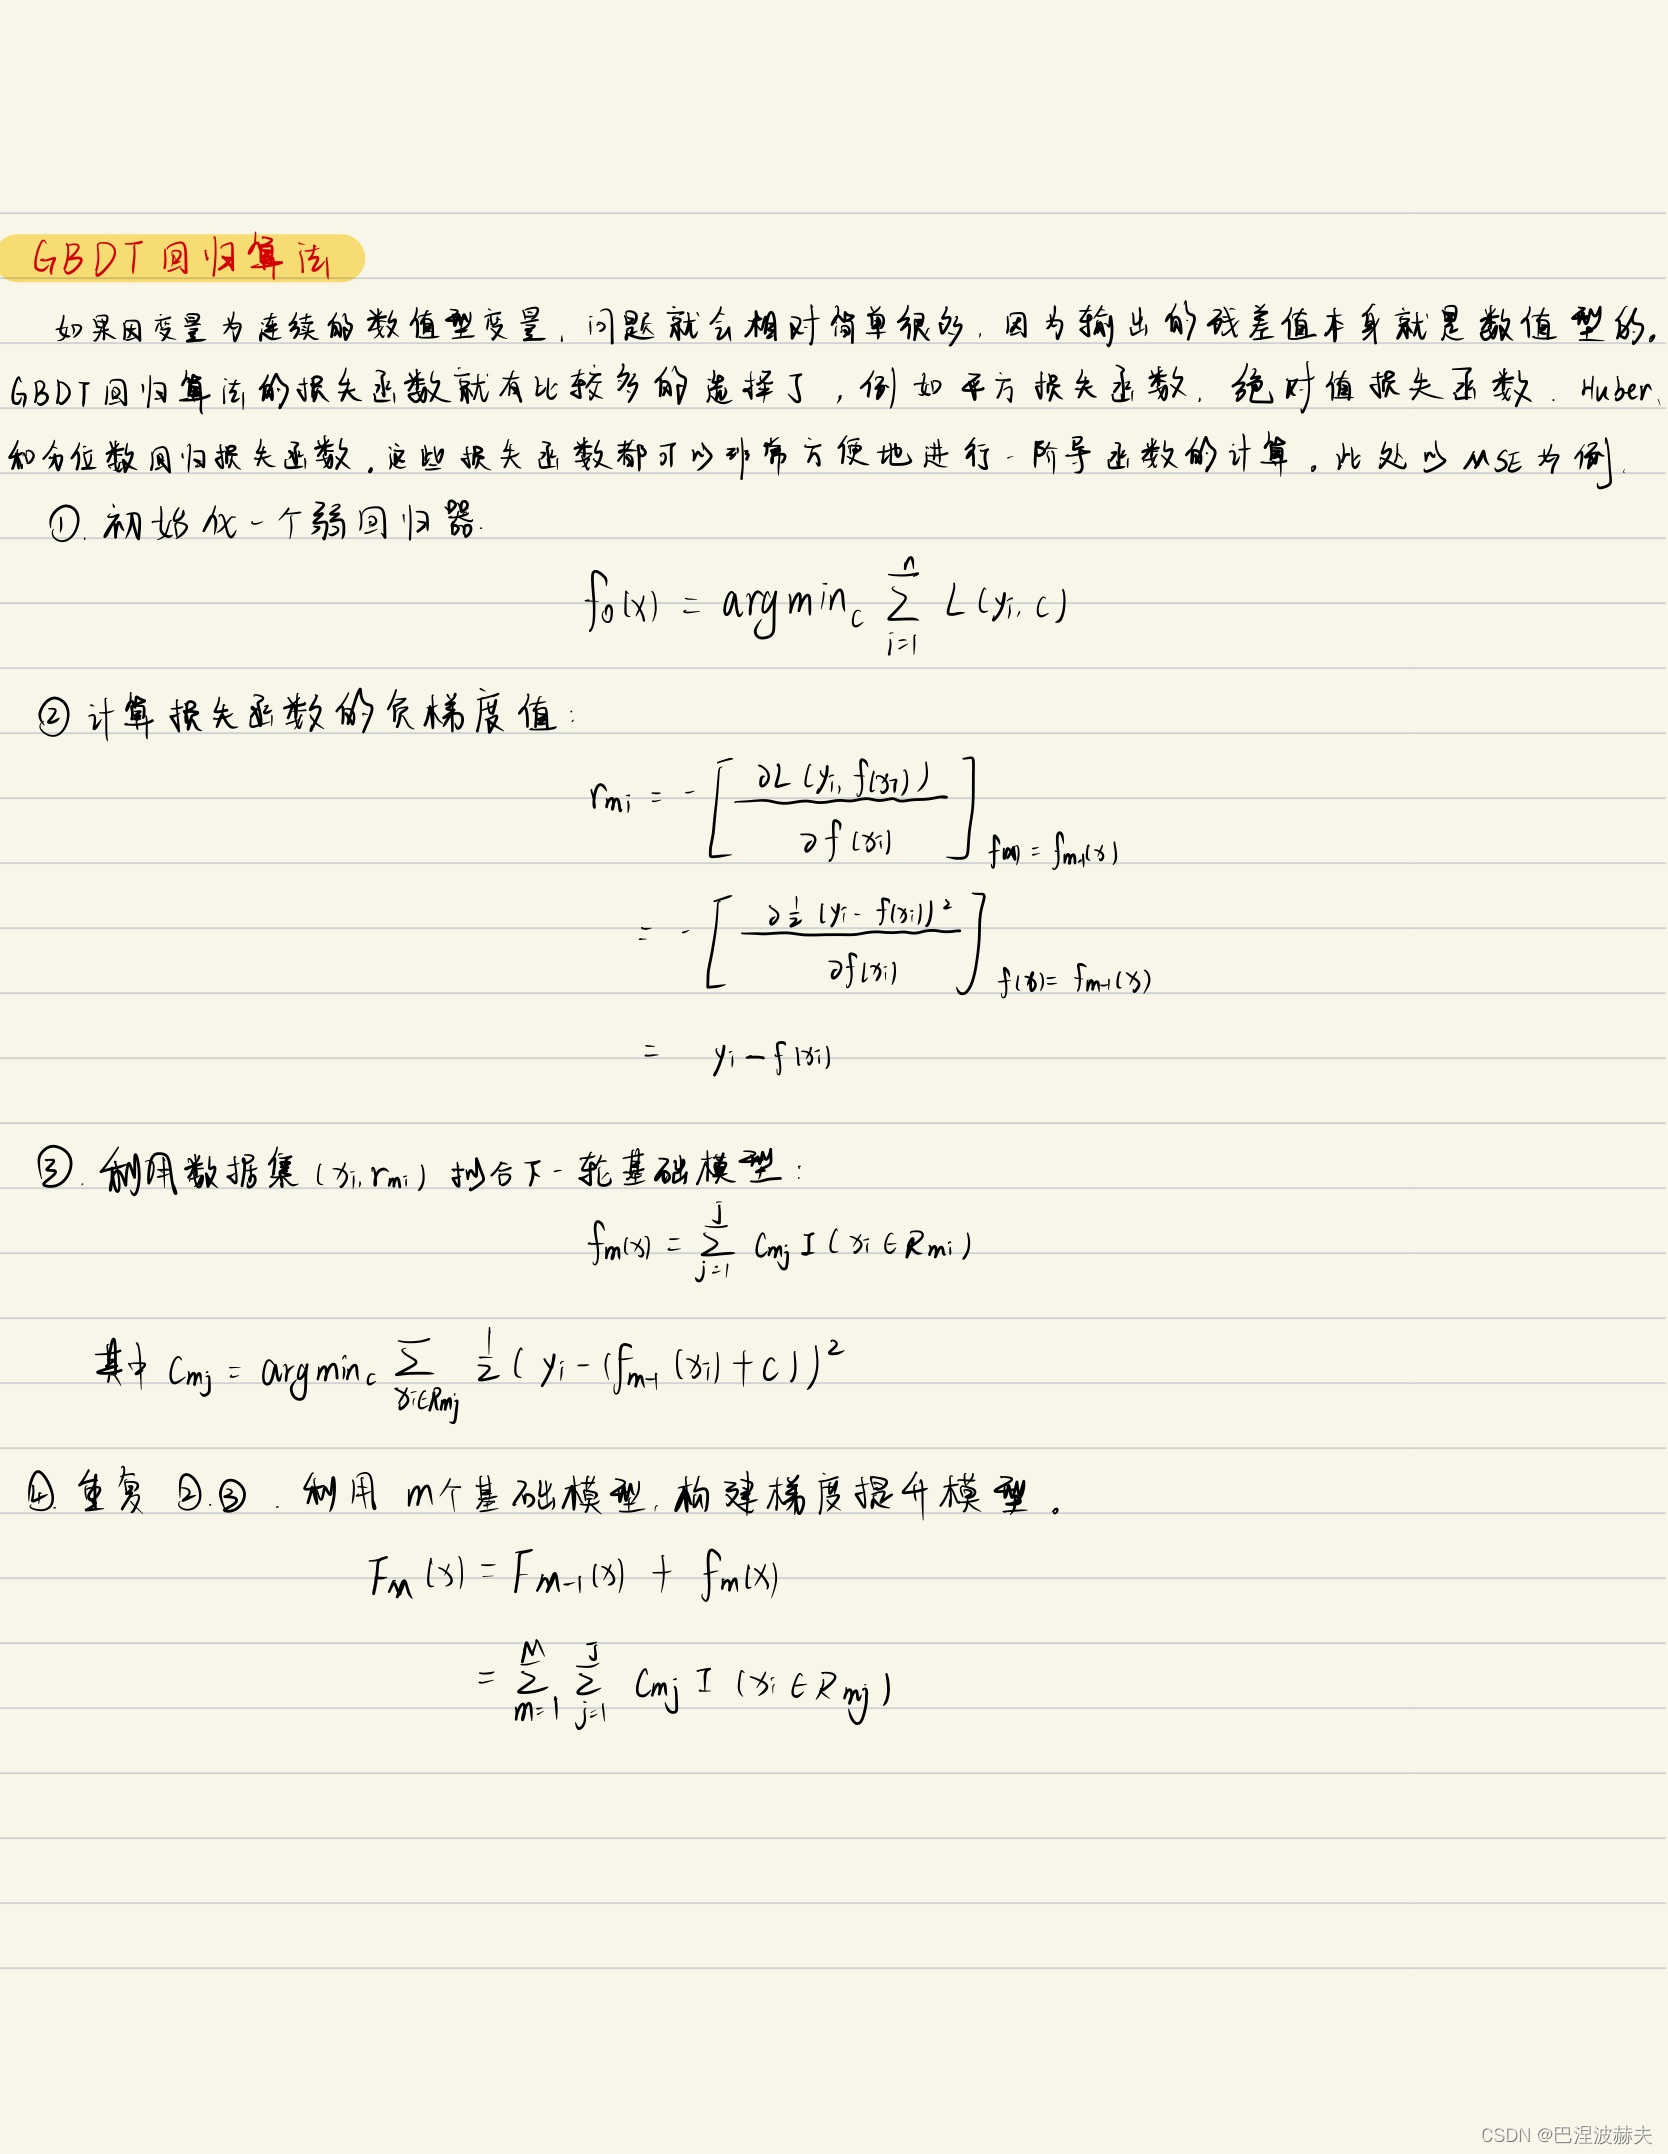 GBDT回归算法
如果因变量为连续的数值型变量,问题就会相对简单很多,因为输出的残差值本身就是数值型的。
GBDT回归算法的损失函数就有比较多的选择了,例如平方损失函数、绝对值损失函数、Huber、
和分位数回归损失函数。这些损失函数都可以非常方便地进行一阶导函数的计算。此处以MSE为例.
①.初始化一个弱回归器.
f₀(x) = argmin_c ∑_{i=1}^{n} L(yᵢ, c)
②计算损失函数的负梯度值:
r_{mi} = -[∂L(yᵢ, f(xᵢ)) / ∂f(xᵢ)]_{f(x) = f_{m-1}(x)}
= -[∂½(yᵢ - f(xᵢ))² / ∂f(xᵢ)]_{f(x) = f_{m-1}(x)}
= yᵢ - f(xᵢ)
③.利用数据集(xᵢ, r_{mi})拟合下一轮基础模型:
f_m(x) = ∑_{j=1}^{J} C_{mj} I(xᵢ ∈ R_{mi})
其中 C_{mj} = argmin_c ∑_{xᵢ∈R_{mj}} ½(yᵢ - (f_{m-1}(xᵢ) + c))²
④.重复②.③.利用m个基础模型,构建梯度提升模型。
F_M(x) = F_{M-1}(x) + f_m(x)
= ∑_{m=1}^{M} ∑_{j=1}^{J} C_{mj} I(xᵢ ∈ R_{mj})
CSDN @巴涅波赫夫